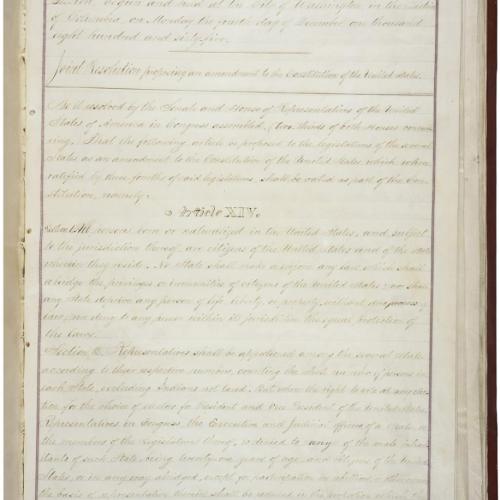 begun and held at the City of Washington in the
of Columbia on Monday the fourth day of December one thousand
eight hundred and sixty-five.
Joint Resolution proposing an amendment to the Constitution of the United States.
Be it resolved by the Senate and House of Representatives of the United
States of America in Congress assembled, (two thirds of both Houses concur
ring,) That the following article be proposed to the legislatures of the several
States as an amendment to the Constitution of the United States, which when
ratified by three fourths of said legislatures, shall be valid as part of the Con-
stitution, namely:
Article XIV.
Section 1. All persons born or naturalized in the United States, and subject
to the jurisdiction thereof, are citizens of the United States and of the State
wherein they reside. No State shall make or enforce any law which shall
abridge the privileges or immunities of citizens of the United States; nor shall
any State deprive any person of life, liberty, or property, without due process of
law, nor deny to any person within its jurisdiction the equal protection of
the laws.
Section 2. Representatives shall be apportioned among the several States
according to their respective numbers, counting the whole number of persons in
each State, excluding Indians not taxed. But when the right to vote at any elec
tion for the choice of electors for President and Vice President of the United States,
Representatives in Congress, the Executive and Judicial officers of a State, or
the members of the Legislature thereof, is denied to any of the male inhab
itants of such State, being twenty-one years of age, and citizens of the United
States, or in any way abridged, except for participation in rebellion, or other crime,
the basis of representation therein shall be reduced in the proportion which